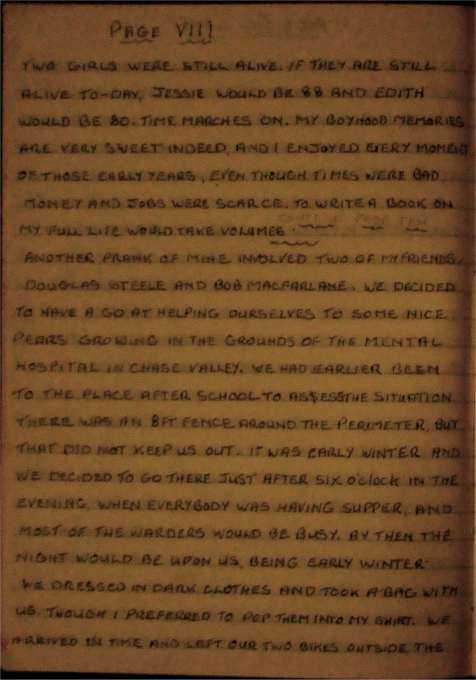 PAGE VIII
TWO GIRLS WERE STILL ALIVE. IF THEY ARE STILL
ALIVE TO-DAY, JESSIE WOULD BE 88 AND EDITH
WOULD BE 80. TIME MARCHES ON. MY BOYHOOD MEMORIES
ARE VERY SWEET INDEED, AND I ENJOYED EVERY MOMENT
OF THOSE EARLY YEARS, EVEN THOUGH TIMES WERE BAD
MONEY AND JOBS WERE SCARCE. TO WRITE A BOOK ON
MY FULL LIFE WOULD TAKE VOLUMES.
ANOTHER PRANK OF MINE INVOLVED TWO OF MY FRIENDS,
DOUGLAS STEELE AND BOB MACFARLANE. WE DECIDED
TO HAVE A GO AT HELPING OURSELVES TO SOME NICE
PEARS GROWING IN THE GROUNDS OF THE MENTAL
HOSPITAL IN CHASE VALLEY. WE HAD EARLIER BEEN
TO THE PLACE AFTER SCHOOL TO ASSESS THE SITUATION
THERE WAS AN 8FT FENCE AROUND THE PERIMETER, BUT
THAT DID NOT KEEP US OUT. IT WAS EARLY WINTER AND
WE DECIDED TO GO THERE JUST AFTER SIX O'CLOCK IN THE
EVENING, WHEN EVERYBODY WAS HAVING SUPPER, AND
MOST OF THE WARDERS WOULD BE BUSY. BY THEN THE
NIGHT WOULD BE UPON US, BEING EARLY WINTER.
WE DRESSED IN DARK CLOTHES AND TOOK A BAG WITH
US. THOUGH I PREFERRED TO POP THEM INTO MY SHIRT. WE
ARRIVED IN TIME AND LEFT OUR TWO BIKES OUTSIDE THE